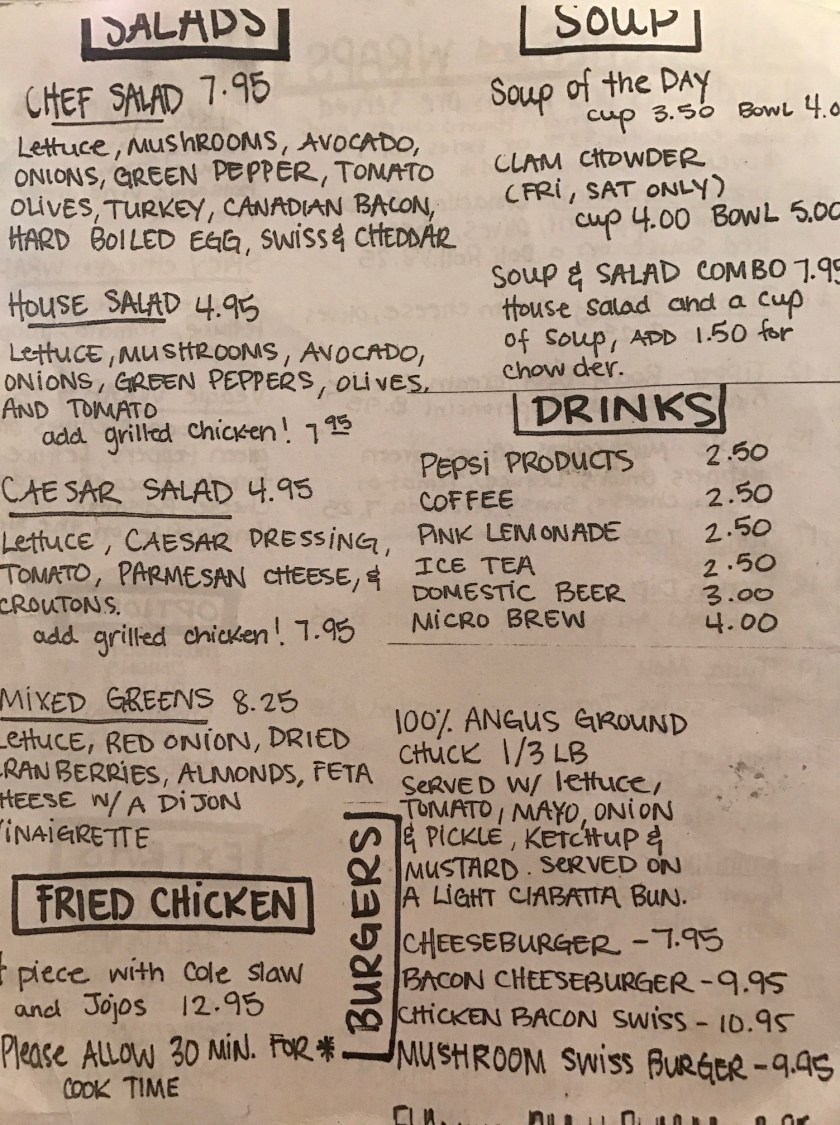 SALADS
CHEF SALAD 7.95
Lettuce, MUSHROOMS, AVOCADO,
ONIONS, GREEN PEPPER, TOMATO
OLIVES, TURKEY, CANADIAN BACON,
HARD BOILED EGG, SWISS & CHEDDAR
HOUSE SALAD 4.95
LETTUCE, MUSHROOMS, AVOCADO,
ONIONS, GREEN PEPPERS, OLIVES,
AND TOMATO
add grilled chicken! 7 95
CAESAR SALAD 4.95
Lettuce, CAESAR DRESSING,
TOMATO, PARMESAN CHEESE, &
CROUTONS.
add grilled chicken! 7.95
MIXED GREENS 8.25
LETTUCE, RED ONION, DRIED
RANBERRIES, ALMONDS, FETA
HEESE W/ A DIJON
VINAIGRETTE
FRIED CHICKEN
piece with Cole slaw
and Jojos 12.95
Please ALLOW 30 MIN. FOR *
COOK TIME
SOUP
Soup of the DAY
cup 3.50 BOWL 4.0
CLAM CHOWDER
(FRI, SAT ONLY)
cup 4.00 BOWL 5.00
SOUP & SALAD COMBO 7.95
House salad and a cup
of soup, ADD 1.50 for
chowder.
DRINKS
PEPSI PRODUCTS 2.50
COFFEE 2.50
PINK LEMONADE 2.50
ICE TEA 2.50
DOMESTIC BEER 3.00
MICRO BREW 4.00
BURGERS
100% ANGUS GROUND
CHUCK 1/3 LB
SERVED W/ lettuce,
TOMATO, MAYO, ONION
& PICKLE, KETCHUP &
MUSTARD. SERVED ON
A LIGHT CIABATTA BUN.
CHEESEBURGER - 7.95
BACON CHEESEBURGER - 9.95
CHICKEN BACON SWISS - 10.95
MUSHROOM SWISS BURGER - 9.95